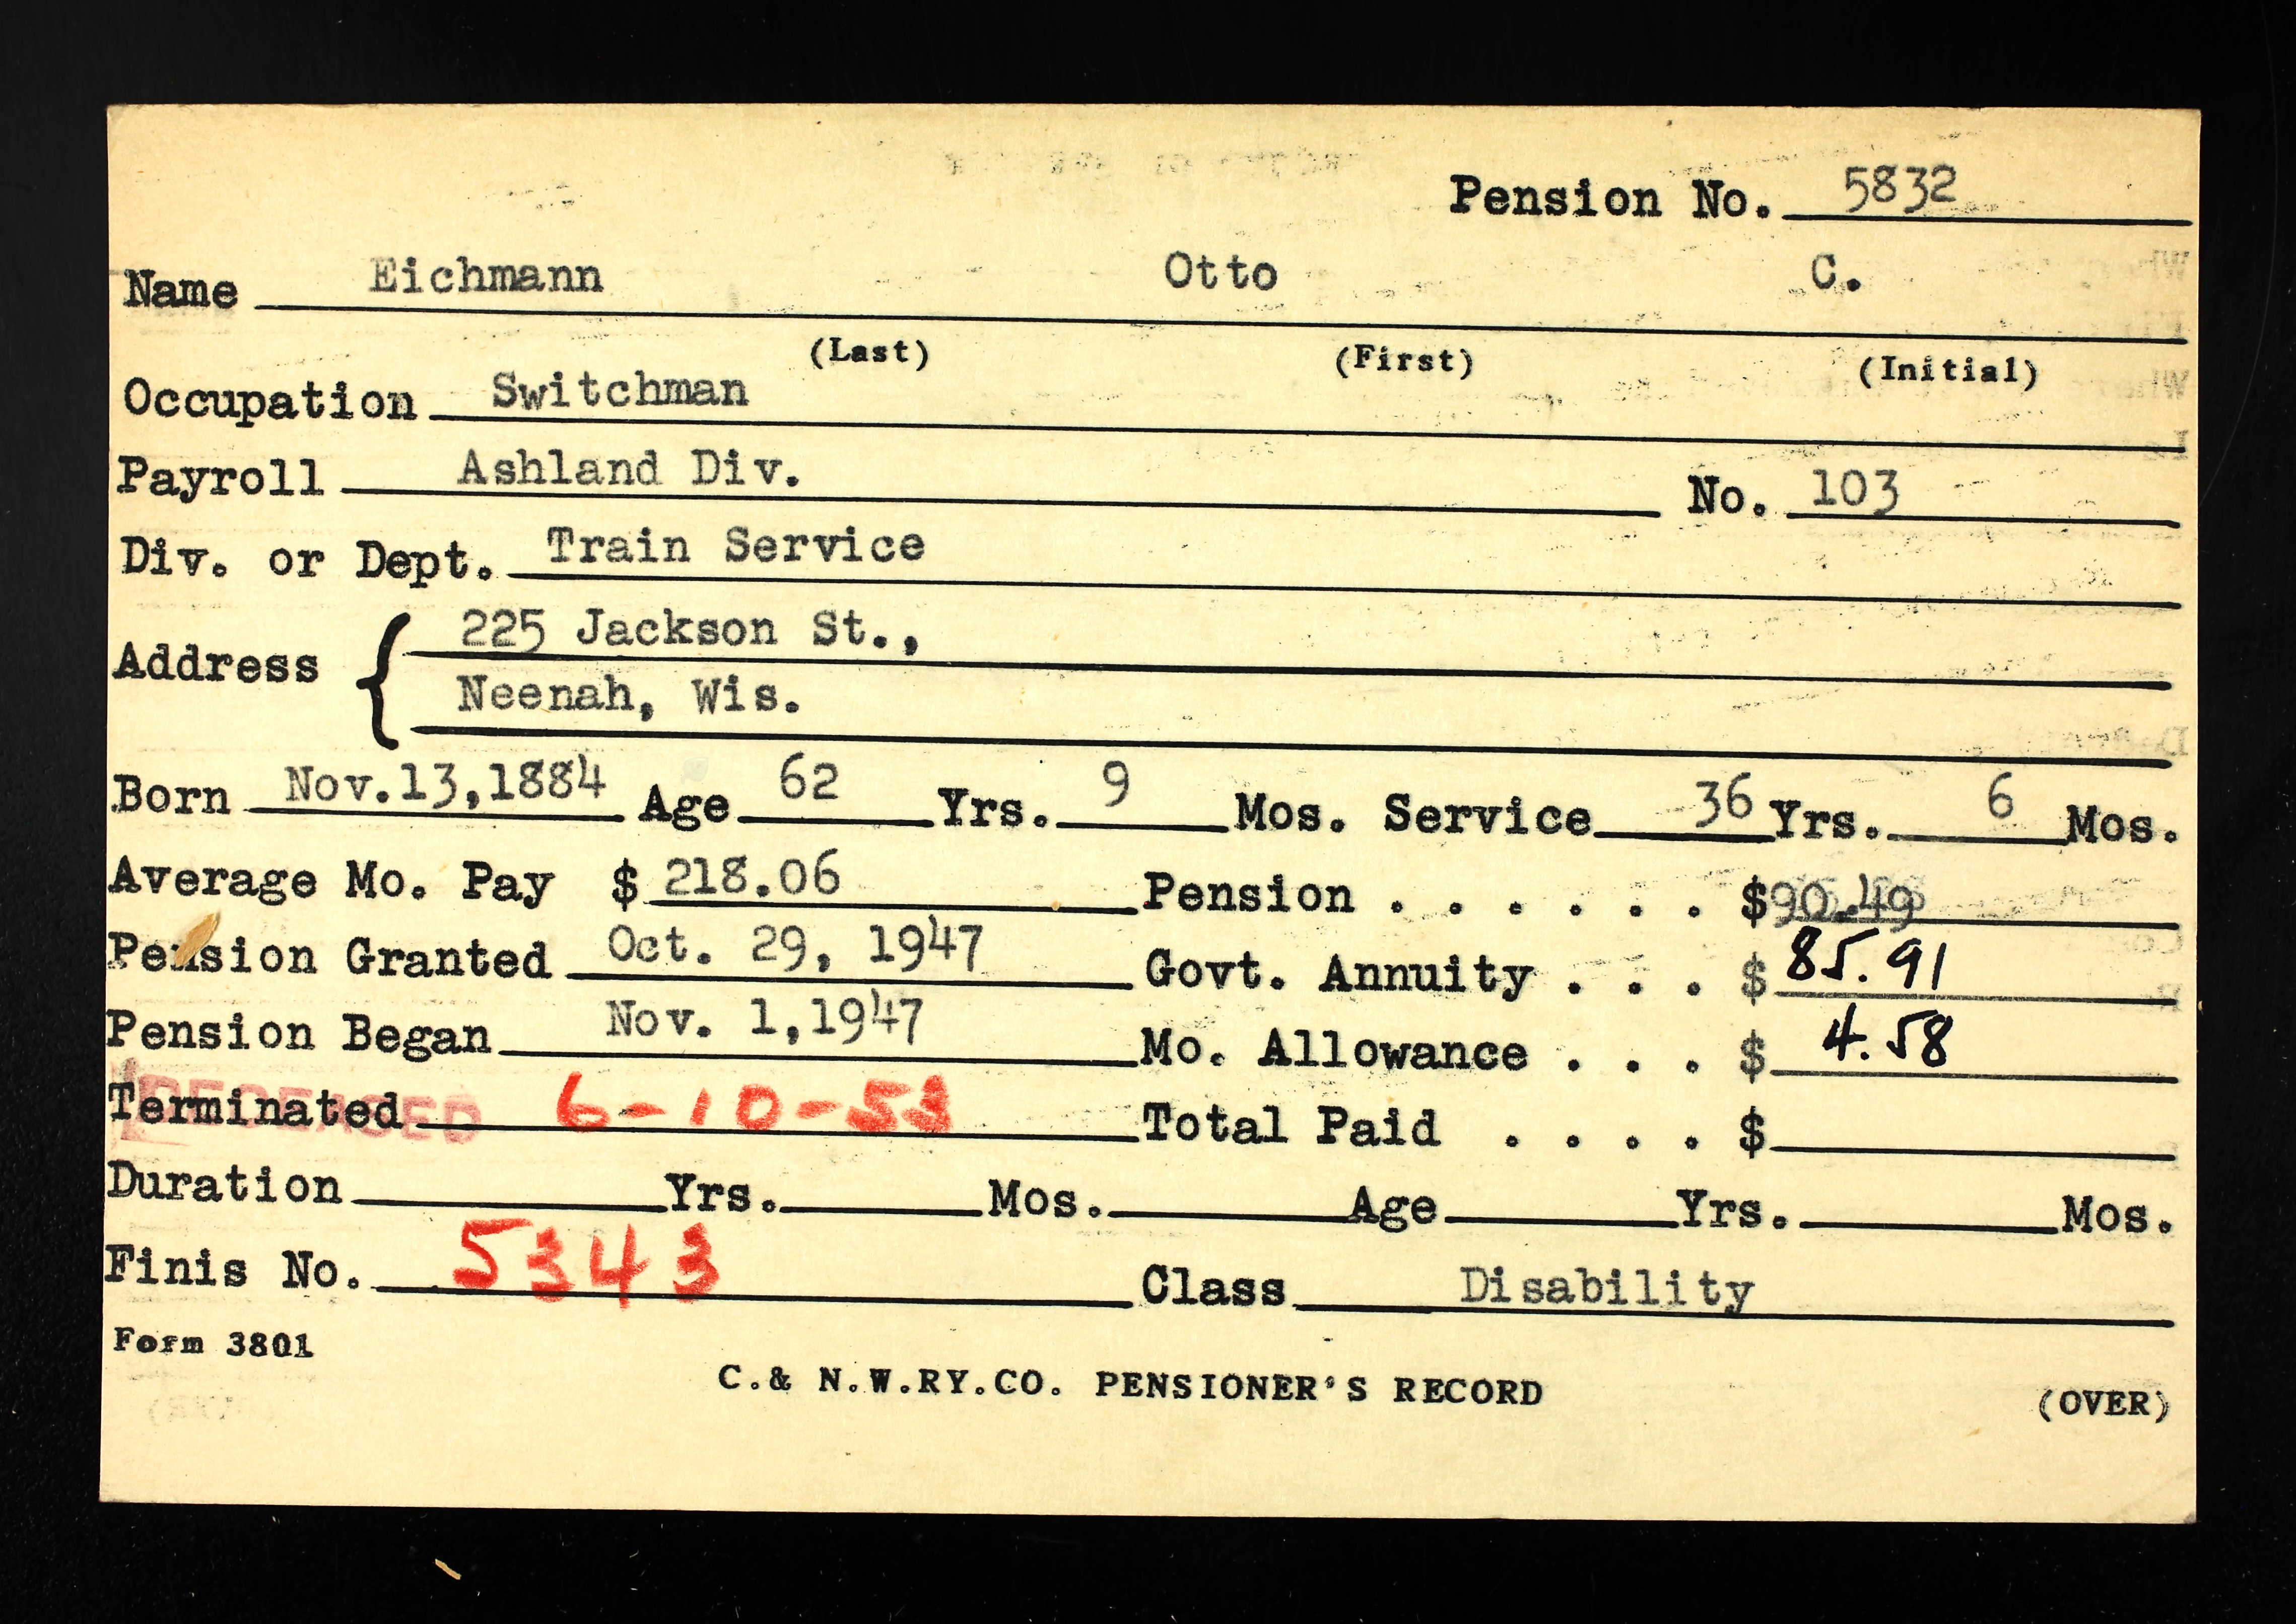 Pension No. 5832
Name Eichmann Otto C.
(Last) (First) (Initial)
Occupation Switchman
Payroll Ashland Div. No. 103
Div. or Dept. Train Service
Address { 225 Jackson St.,
Neenah, Wis.
Born Nov.13,1884 Age 62 Yrs. 9 Mos. Service 36 Yrs. 6 Mos.
Average Mo. Pay $ 218.06 Pension . . . . . . $90.49
Pension Granted Oct. 29, 1947 Govt. Annuity . . . $ 85.91
Pension Began Nov. 1,1947 Mo. Allowance . . . $ 4.58
DECEASED
Terminated 6-10-53 Total Paid . . . . $
Duration Yrs. Mos. Age Yrs. Mos.
Finis No. 5343 Class Disability
Form 3801
C.& N.W.RY.CO. PENSIONER'S RECORD
(OVER)